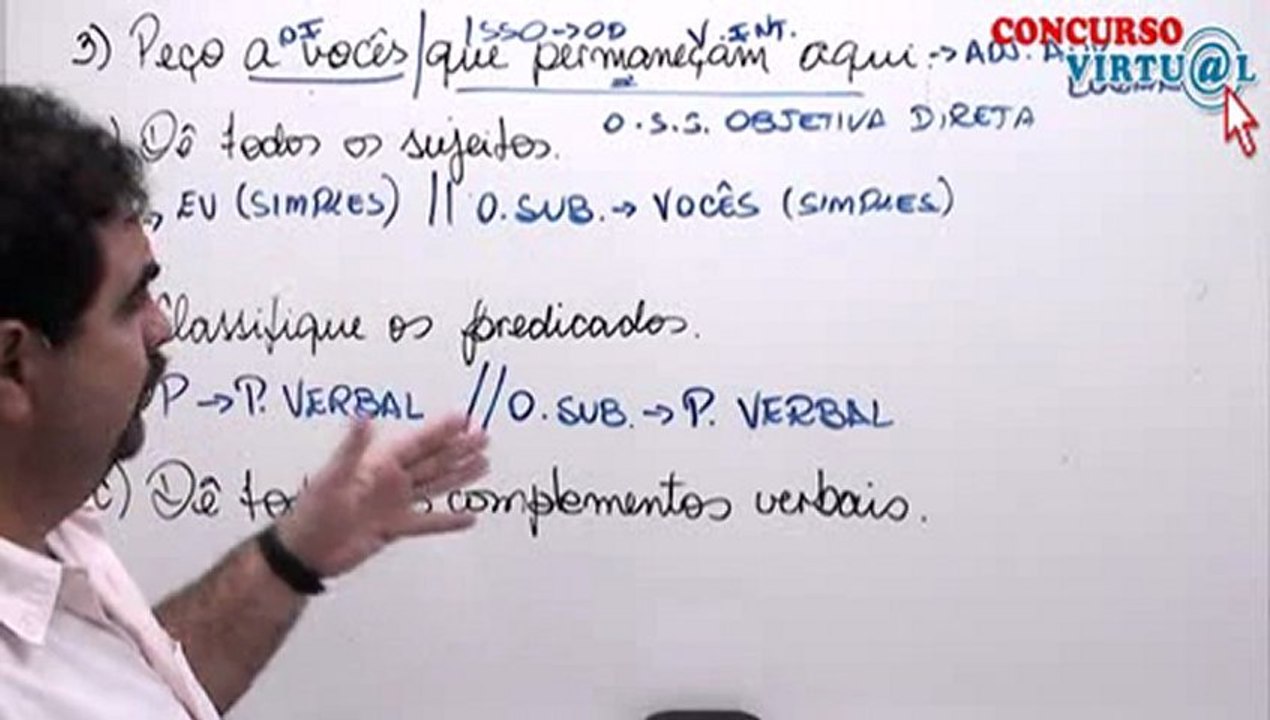 OI ISSO→OD V. INT.
3) Peço a vocês / que permaneçam aqui. → ADJ. A
CONCURSO VIRTU@L
O.S.S. OBJETIVA DIRETA
) Dê todos os sujeitos.
EU (SIMPLES) // O. SUB. → VOCÊS (SIMPLES)
Classifique os predicados.
P → P. VERBAL // O. SUB. → P. VERBAL
c) Dê complementos verbais.